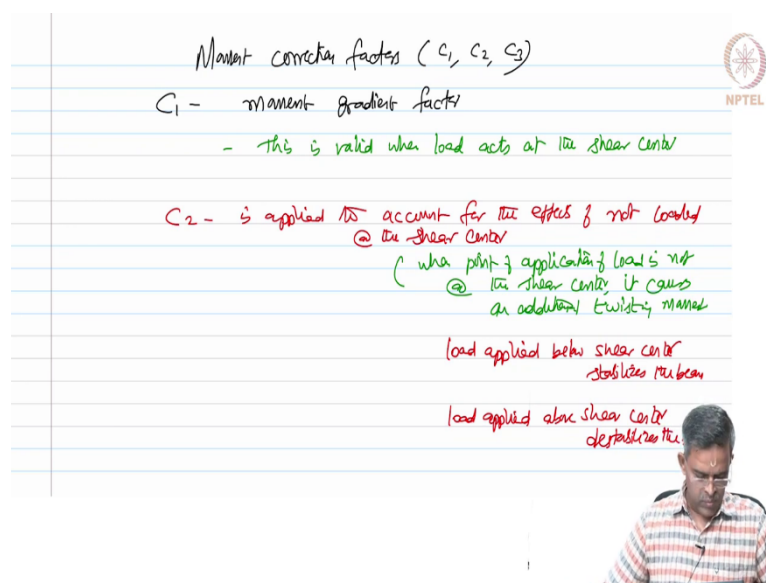 Moment correction factors (C1, C2, C3)
NPTEL
C1 - moment gradient factor
- This is valid when load acts at the shear center
C2 - is applied to account for the effects of not loaded
@ the shear center
( when point of application of load is not
@ the shear center, it causes
an additional twisting moment
load applied below shear center
stabilizes the beam
load applied above shear center
destabilizes the